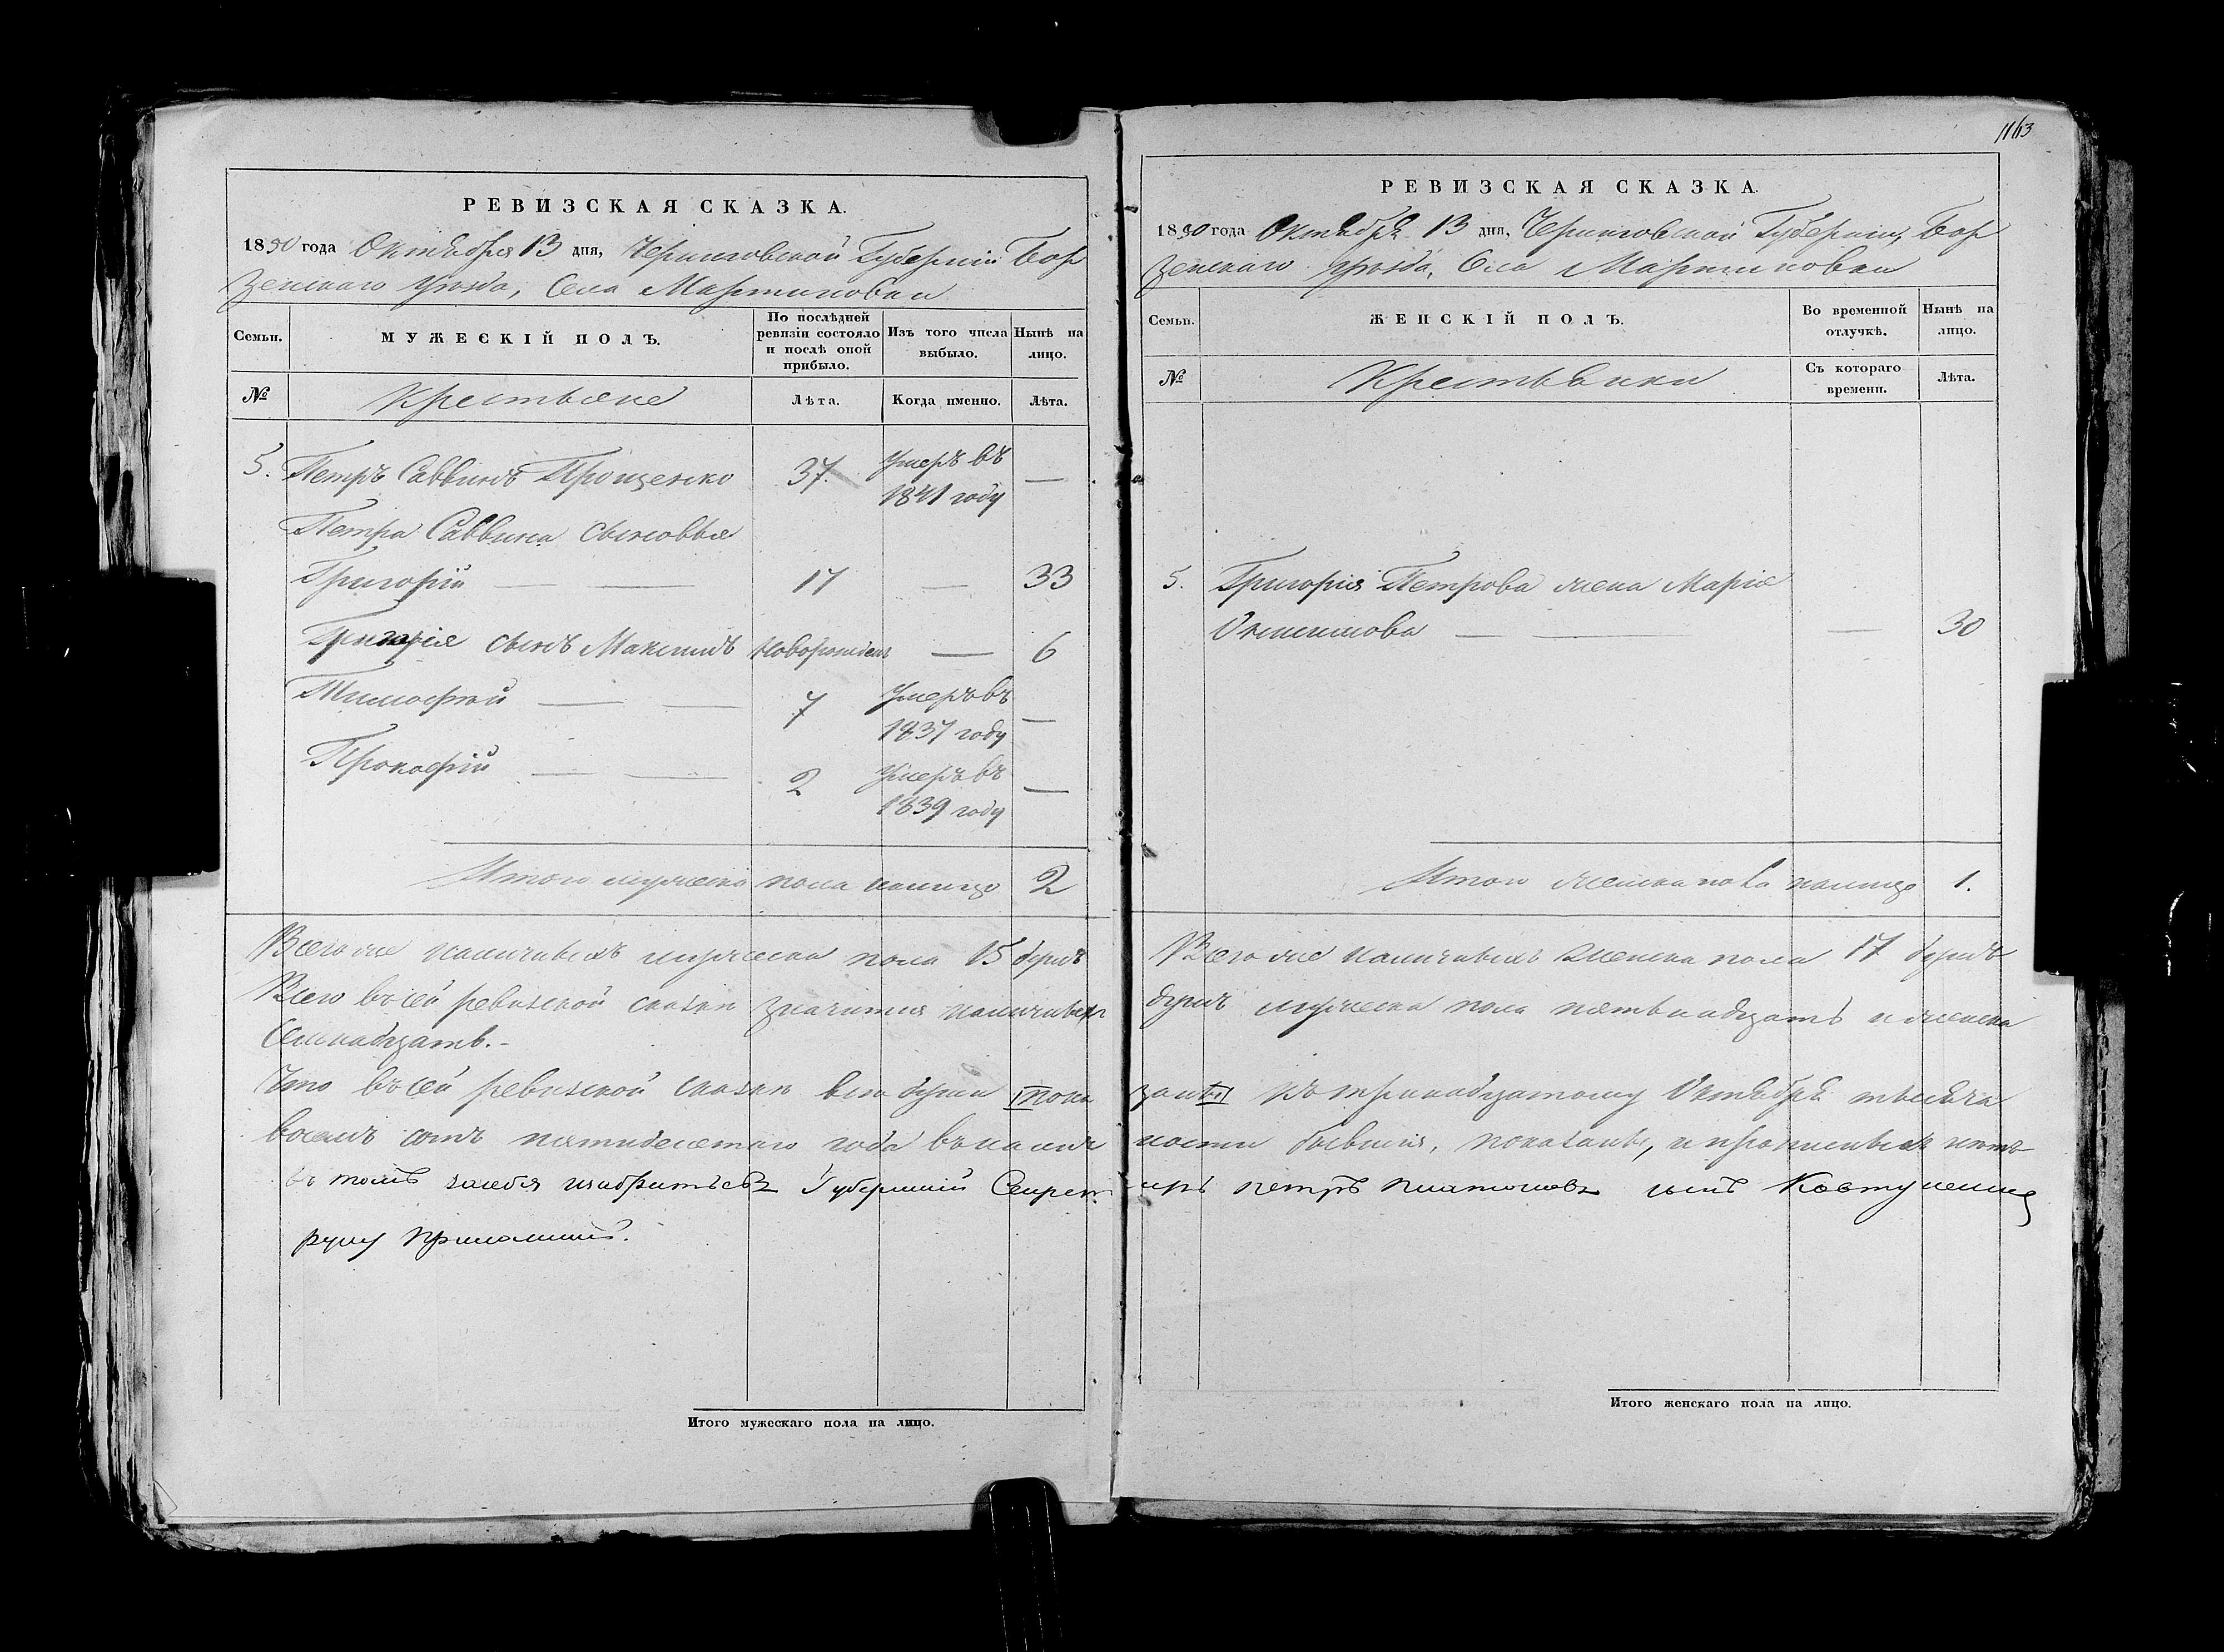 РЕВИЗСКАЯ СКАЗКА.
1850 года Октября 13 дня, Черниговской Губернии Бор
зенского Уезда, Села Мартиновки
Семьи.
МУЖЕСКІЙ ПОЛЪ.
По послѣдней ревизіи состояло и послѣ оной прибыло.
Изъ того числа выбыло.
Нынѣ на лицо.
№
Крестьяне
Лѣта.
Когда именно.
Лѣта.
5. Петръ Саввинъ Прощенко 37. Умеръ въ 1841 году —
Петра Саввина сыновья
Григорій — — 17 — 33
Григорія сынъ Максимъ новорожден — 6
Тимофей — — 7 Умеръ въ 1837 году —
Прокофій — — 2 Умеръ въ 1839 году —
Итого мужеска пола налицо 2
Всего же наличныхъ мужеска пола 15 душъ
Всего въ сей ревизской сказки значится наличныхъ
Семнадцать.-
Что въ сей ревизской сказки все души пока
восемь сотъ пятидесятаго года въ налич
въ томъ Губернский Секрет
руку приложилъ.
Итого мужескаго пола на лицо.
1163
РЕВИЗСКАЯ СКАЗКА.
1850 года Октября 13 дня, Черниговской Губернии, Бор
зенскаго уезда, Села Мартиновки
Семьи.
ЖЕНСКІЙ ПОЛЪ.
Во временной отлучкѣ.
Нынѣ на лицо.
№
Крестьянки
Съ котораго времени.
Лѣта.
5. Григорія Петрова жена Марія
— — — 30
Итого женска пола налицо 1.
Всего же наличныхъ женска пола 17 душъ
душъ мужеска пола пятьнадцать и женска
заны къ тринадцатому Октября тысяча
ности бывшія, показаны, и прописныхъ
аръ Петръ Платоновъ сынъ
Итого женскаго пола на лицо.